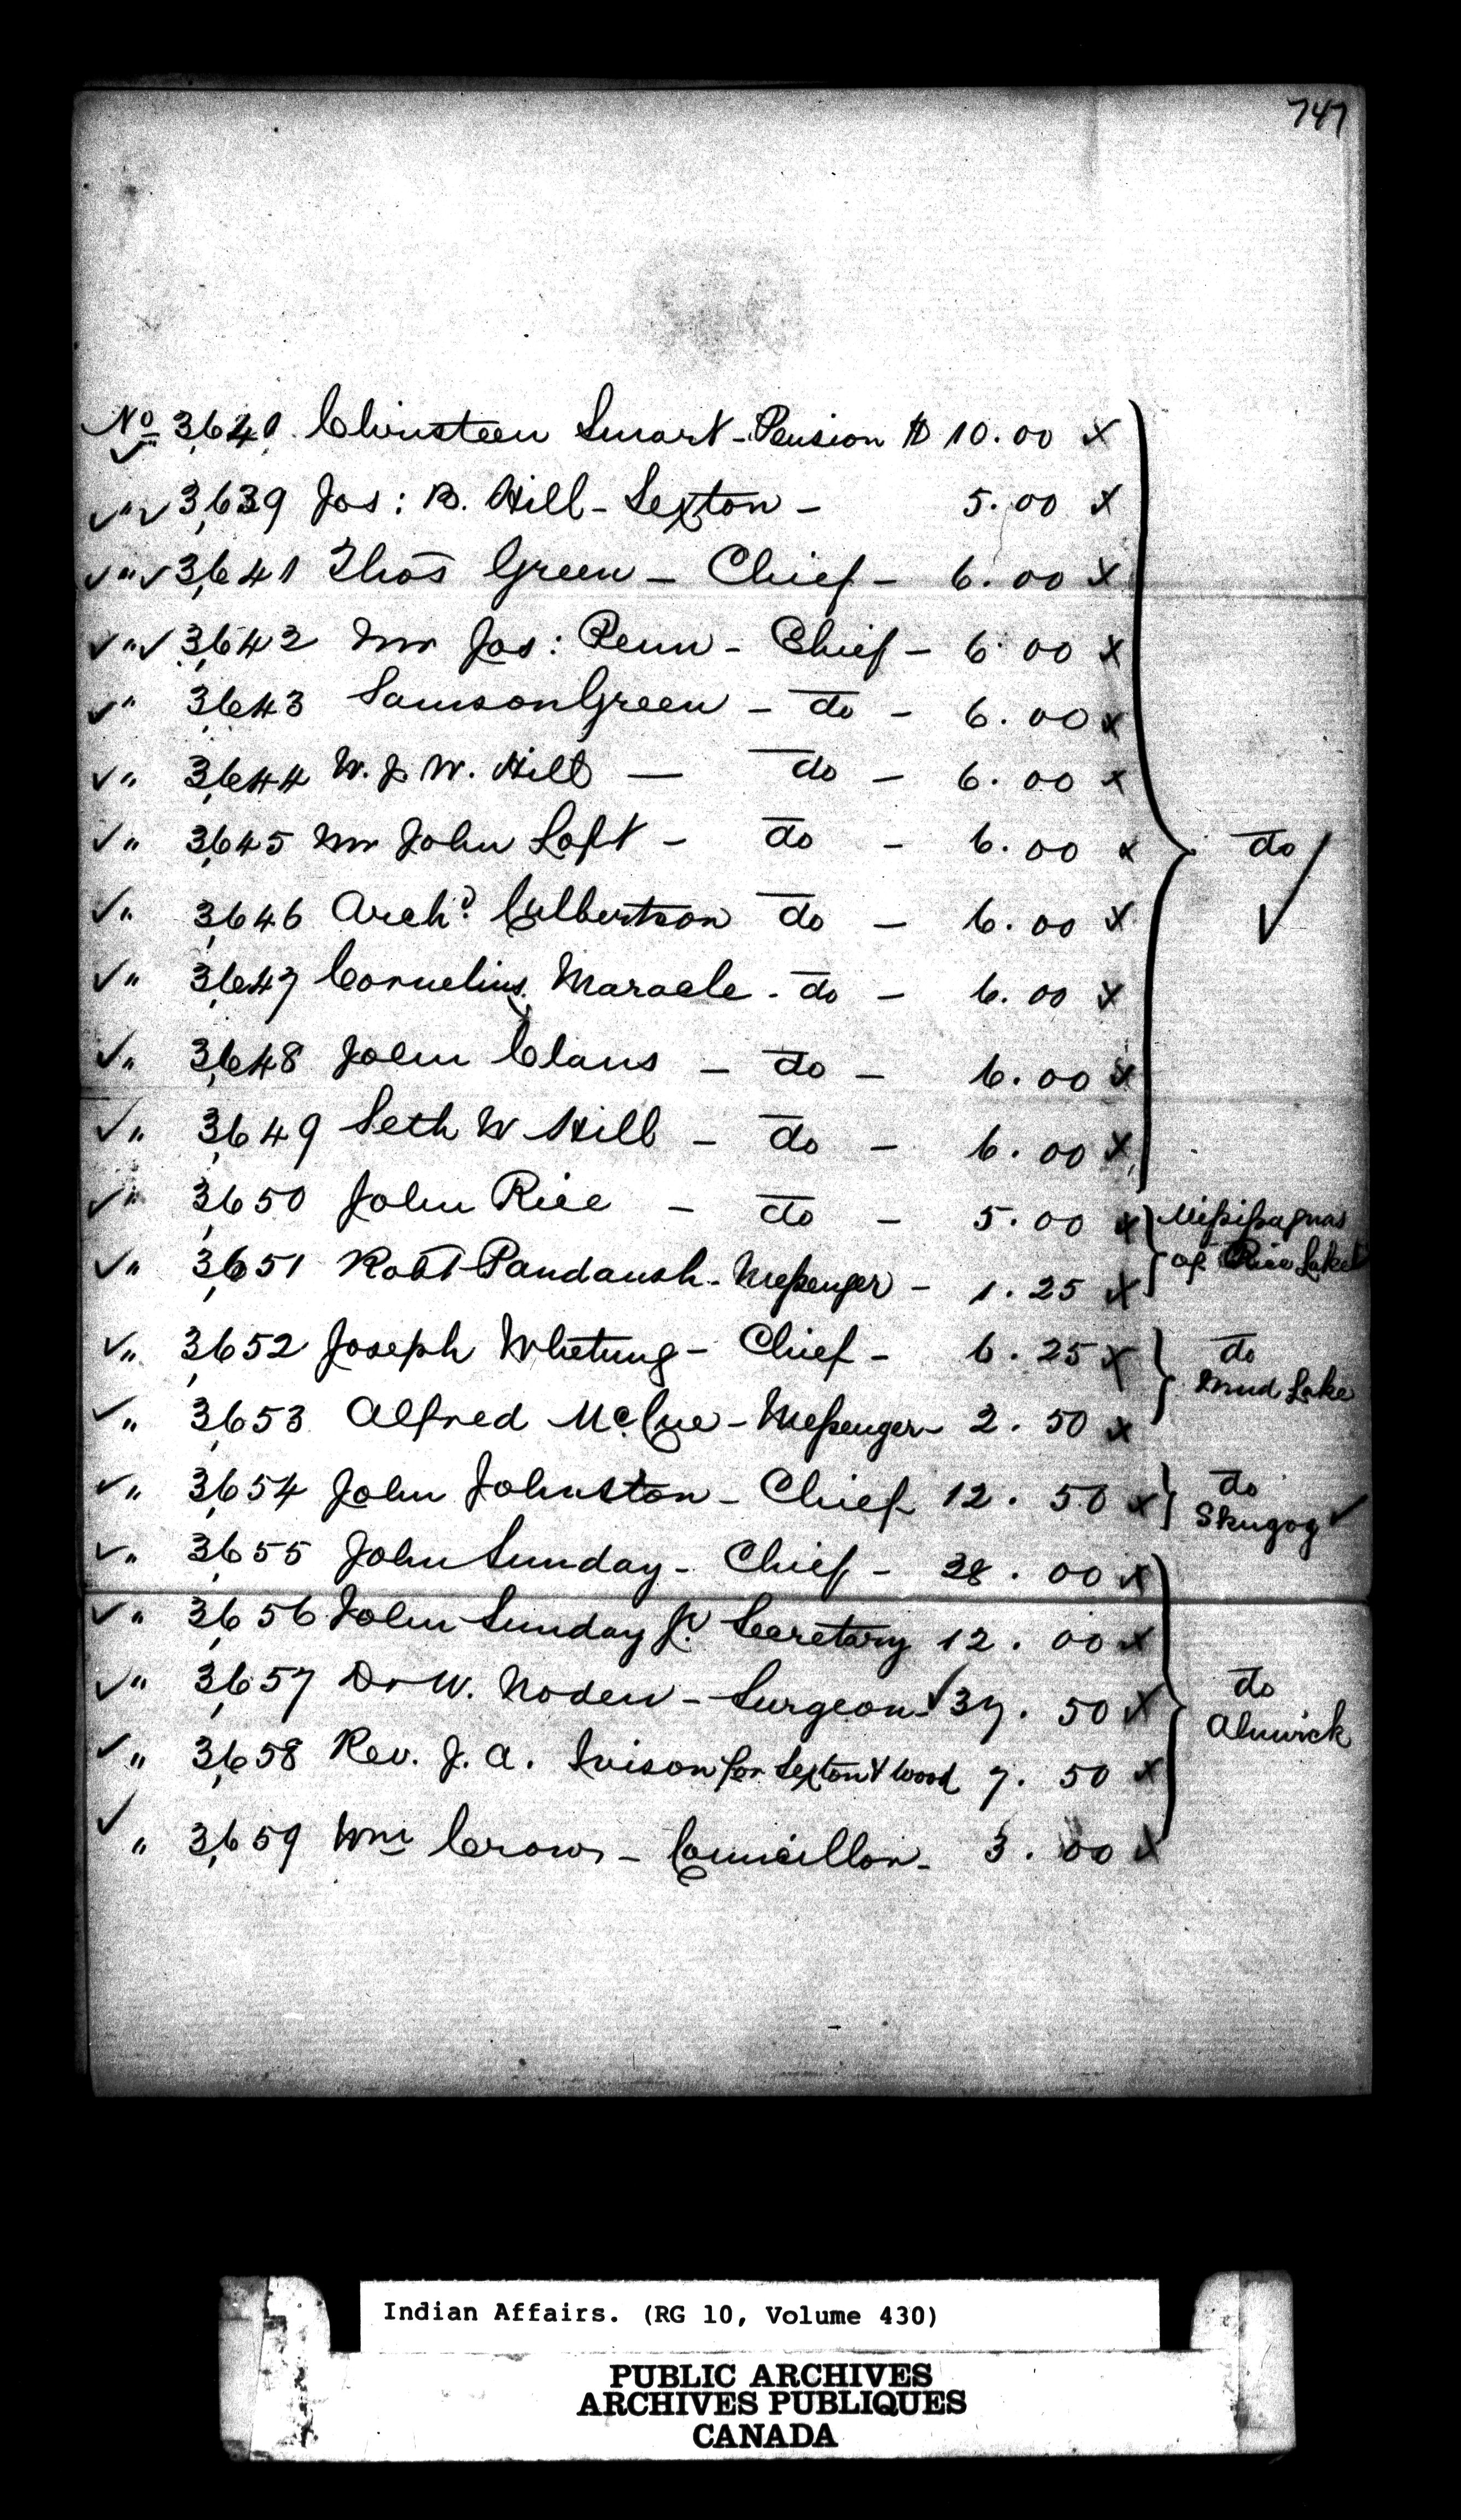 747
No 3,640. Christeen Smart - Pension $ 10.00 x
✓"✓ 3,639 Jos: B. Hill - Sexton - 5.00 x
✓"✓ 3,641 Thos Green - Chief - 6.00 x
✓"✓ 3,642 Mr Jos: Penn - Chief - 6.00 x
✓" 3,643 Samson Green - do - 6.00 x
✓" 3,644 W. J. W. Hill — do - 6.00 x
✓" 3,645 Mr John Loft - do - 6.00 x
do ✓
✓" 3,646 Archd Culbertson do - 6.00 x
✓" 3,647 Cornelius Maracle - do - 6.00 x
✓" 3,648 John Claus - do - 6.00 x
✓" 3,649 Seth W Hill - do - 6.00 x
✓" 3,650 John Rice - do - 5.00 x Missisaguas
✓" 3,651 Robt Pandaush - Messenger - 1.25 x of Rice Lake
✓" 3,652 Joseph Whetung - Chief - 6.25 x do
Mud Lake
✓" 3,653 Alfred McCue - Messenger - 2.50 x
✓" 3,654 John Johnston - Chief 12.50 x do
Skugog ✓
✓" 3,655 John Sunday - Chief - 38.00 x
✓" 3,656 John Sunday Jr. Secretary 12.00 x
✓" 3,657 Dr W. Noden - Surgeon ✓ 37.50 x do
Alnwick
✓" 3,658 Rev. J. A. Ivison for Sexton & Wood 7.50 x
✓" 3,659 Wm Crow - Councillor - 3.00 x
Indian Affairs. (RG 10, Volume 430)
PUBLIC ARCHIVES
ARCHIVES PUBLIQUES
CANADA